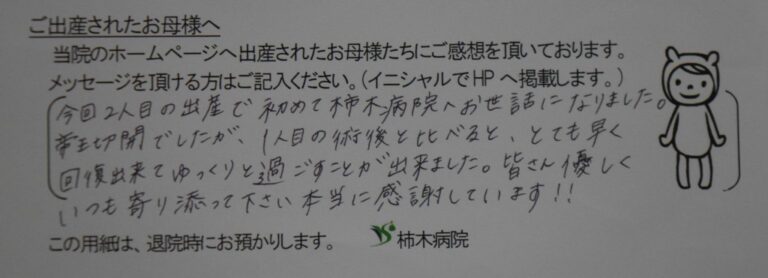 ご出産されたお母様へ
当院のホームページへ出産されたお母様たちにご感想を頂いております。
メッセージを頂ける方はご記入ください。（イニシャルでHPへ掲載します。）
今回2人目の出産で初めて柿木病院へお世話になりました。
帝王切開でしたが、1人目の術後と比べると、とても早く
回復出来てゆっくりと過ごすことが出来ました。皆さん優しく
いつも寄り添って下さい本当に感謝しています!!
この用紙は、退院時にお預かりします。 柿木病院